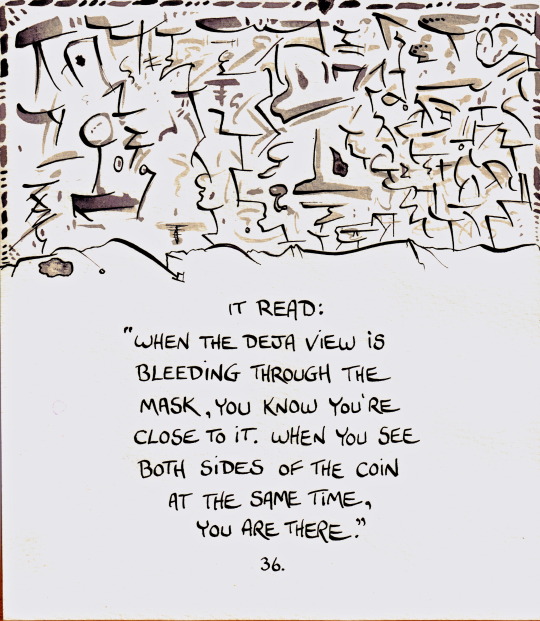 IT READ:
"WHEN THE DEJA VIEW iS
BLEEDING THROUGH THE
MASK, YOU KNOW YOU'RE
CLOSE TO iT. WHEN YOU SEE
BOTH SiDES OF THE COiN
AT THE SAME TiME,
YOU ARE THERE."
36.